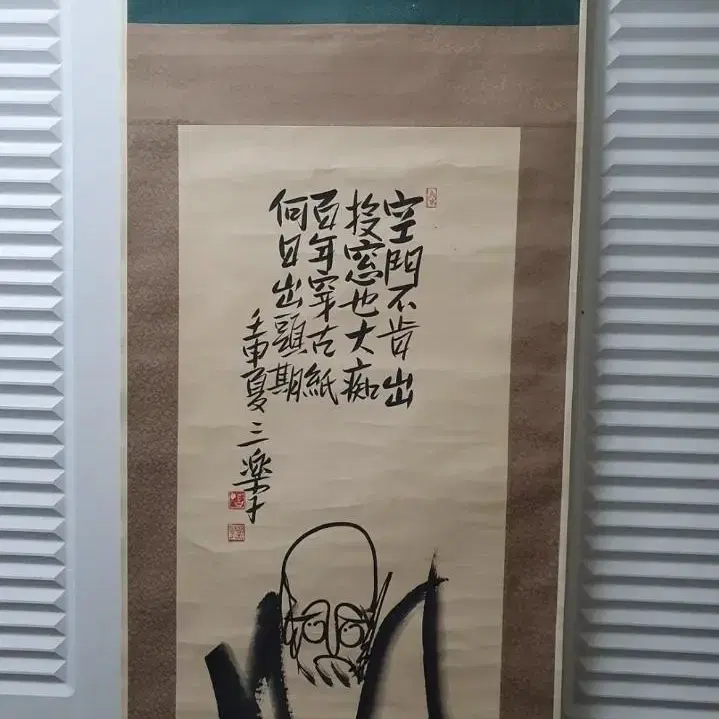 空門不肯出
投窓也大痴
百年穿古紙
何日出頭期
壬申夏 三楽子